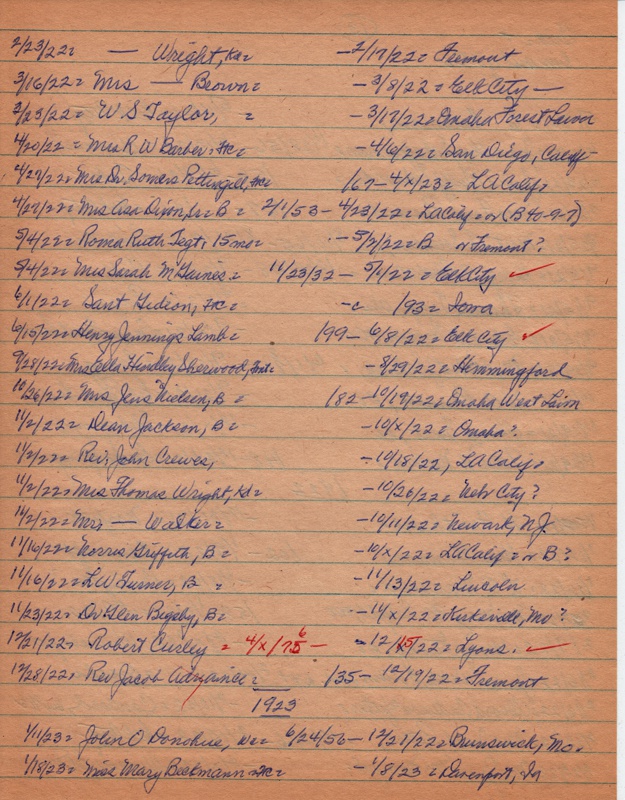 2/23/22= — Wright, Kd= — 2/17/22= Fremont
3/16/22= Mrs — Brown= — 3/8/22= Elk City —
3/23/22= W S Taylor, = — 3/17/22= Omaha Forest Lawn
4/20/22 = Mrs R W Barber= — 4/6/22= San Diego, Calif
4/27/22= Mrs Dr. Somers Pettingill, 167 — 4/x/23= LA Calif=
4/27/22= Mrs Asa Dixon, B= 2/1/53 — 4/23/22= LA Calif= or (B 40-9-7)
5/4/22= Roma Ruth Tegt, 15 mo= — 5/2/22= B or Fremont?
5/4/22= Mrs Sarah M Gaines= 11/23/32 — 5/1/22= Elk City ✓
6/1/22= Sant Gideon, = — c 193= Iowa
6/15/22= Henry Jennings Lamb= 199 — 6/8/22= Elk City ✓
9/28/22= Mrs Ella Hindley Sherwood, — 8/29/22= Hemmingford
10/26/22= Mrs Jens Nielsen, B = 182 — 10/19/22= Omaha West Lawn
11/2/22= Dean Jackson, B = — 10/x/22= Omaha?
11/2/22= Rev, John Crewes, — 10/18/22, LA Calif=
11/2/22= Mrs Thomas Wright, Kd= — 10/26/22= Nebr City?
11/2/22= Mrs, — Walker= — 10/11/22= Newark, N.J.
11/16/22= Norris Griffith, B = — 10/x/22= LA Calif= or B?
11/16/22= L W Turner, B = — 11/13/22= Lincoln
11/23/22= Dr Glen Bigsby, B= — 11/x/22= Kirksville, Mo?
12/21/22= Robert Curley = 4/x/76 — = 12/15/22= Lyons. ✓
12/28/22= Rev Jacob Adriance= 135 — 12/19/22= Fremont
1923
1/11/23= John O Donohue, We= 6/24/56 — 12/21/22= Brunswick, Mo=
1/18/23= Miss Mary Beckmann= — 1/8/23= Davenport, Ia